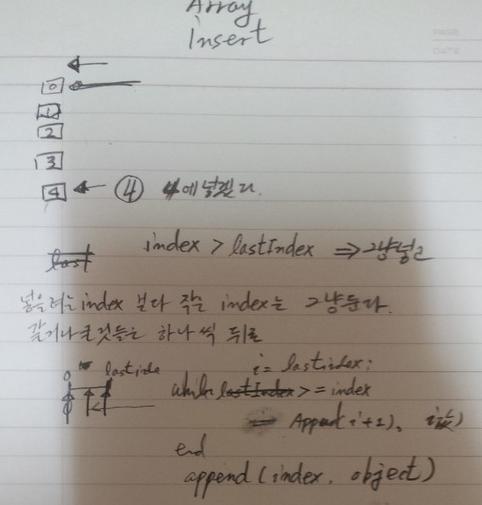 Array
insert
0
1
2
3
4 ④ 4에 넣겠다.
index > lastIndex ⇒ 그냥 넣고
last
넣을려는 index 보다 작은 index는 그냥둔다.
같거나 큰것들은 하나 씩 뒤로
0 lastinde
i = lastindex;
while lastIndex >= index
Append(i+1),
end
append(index, object)